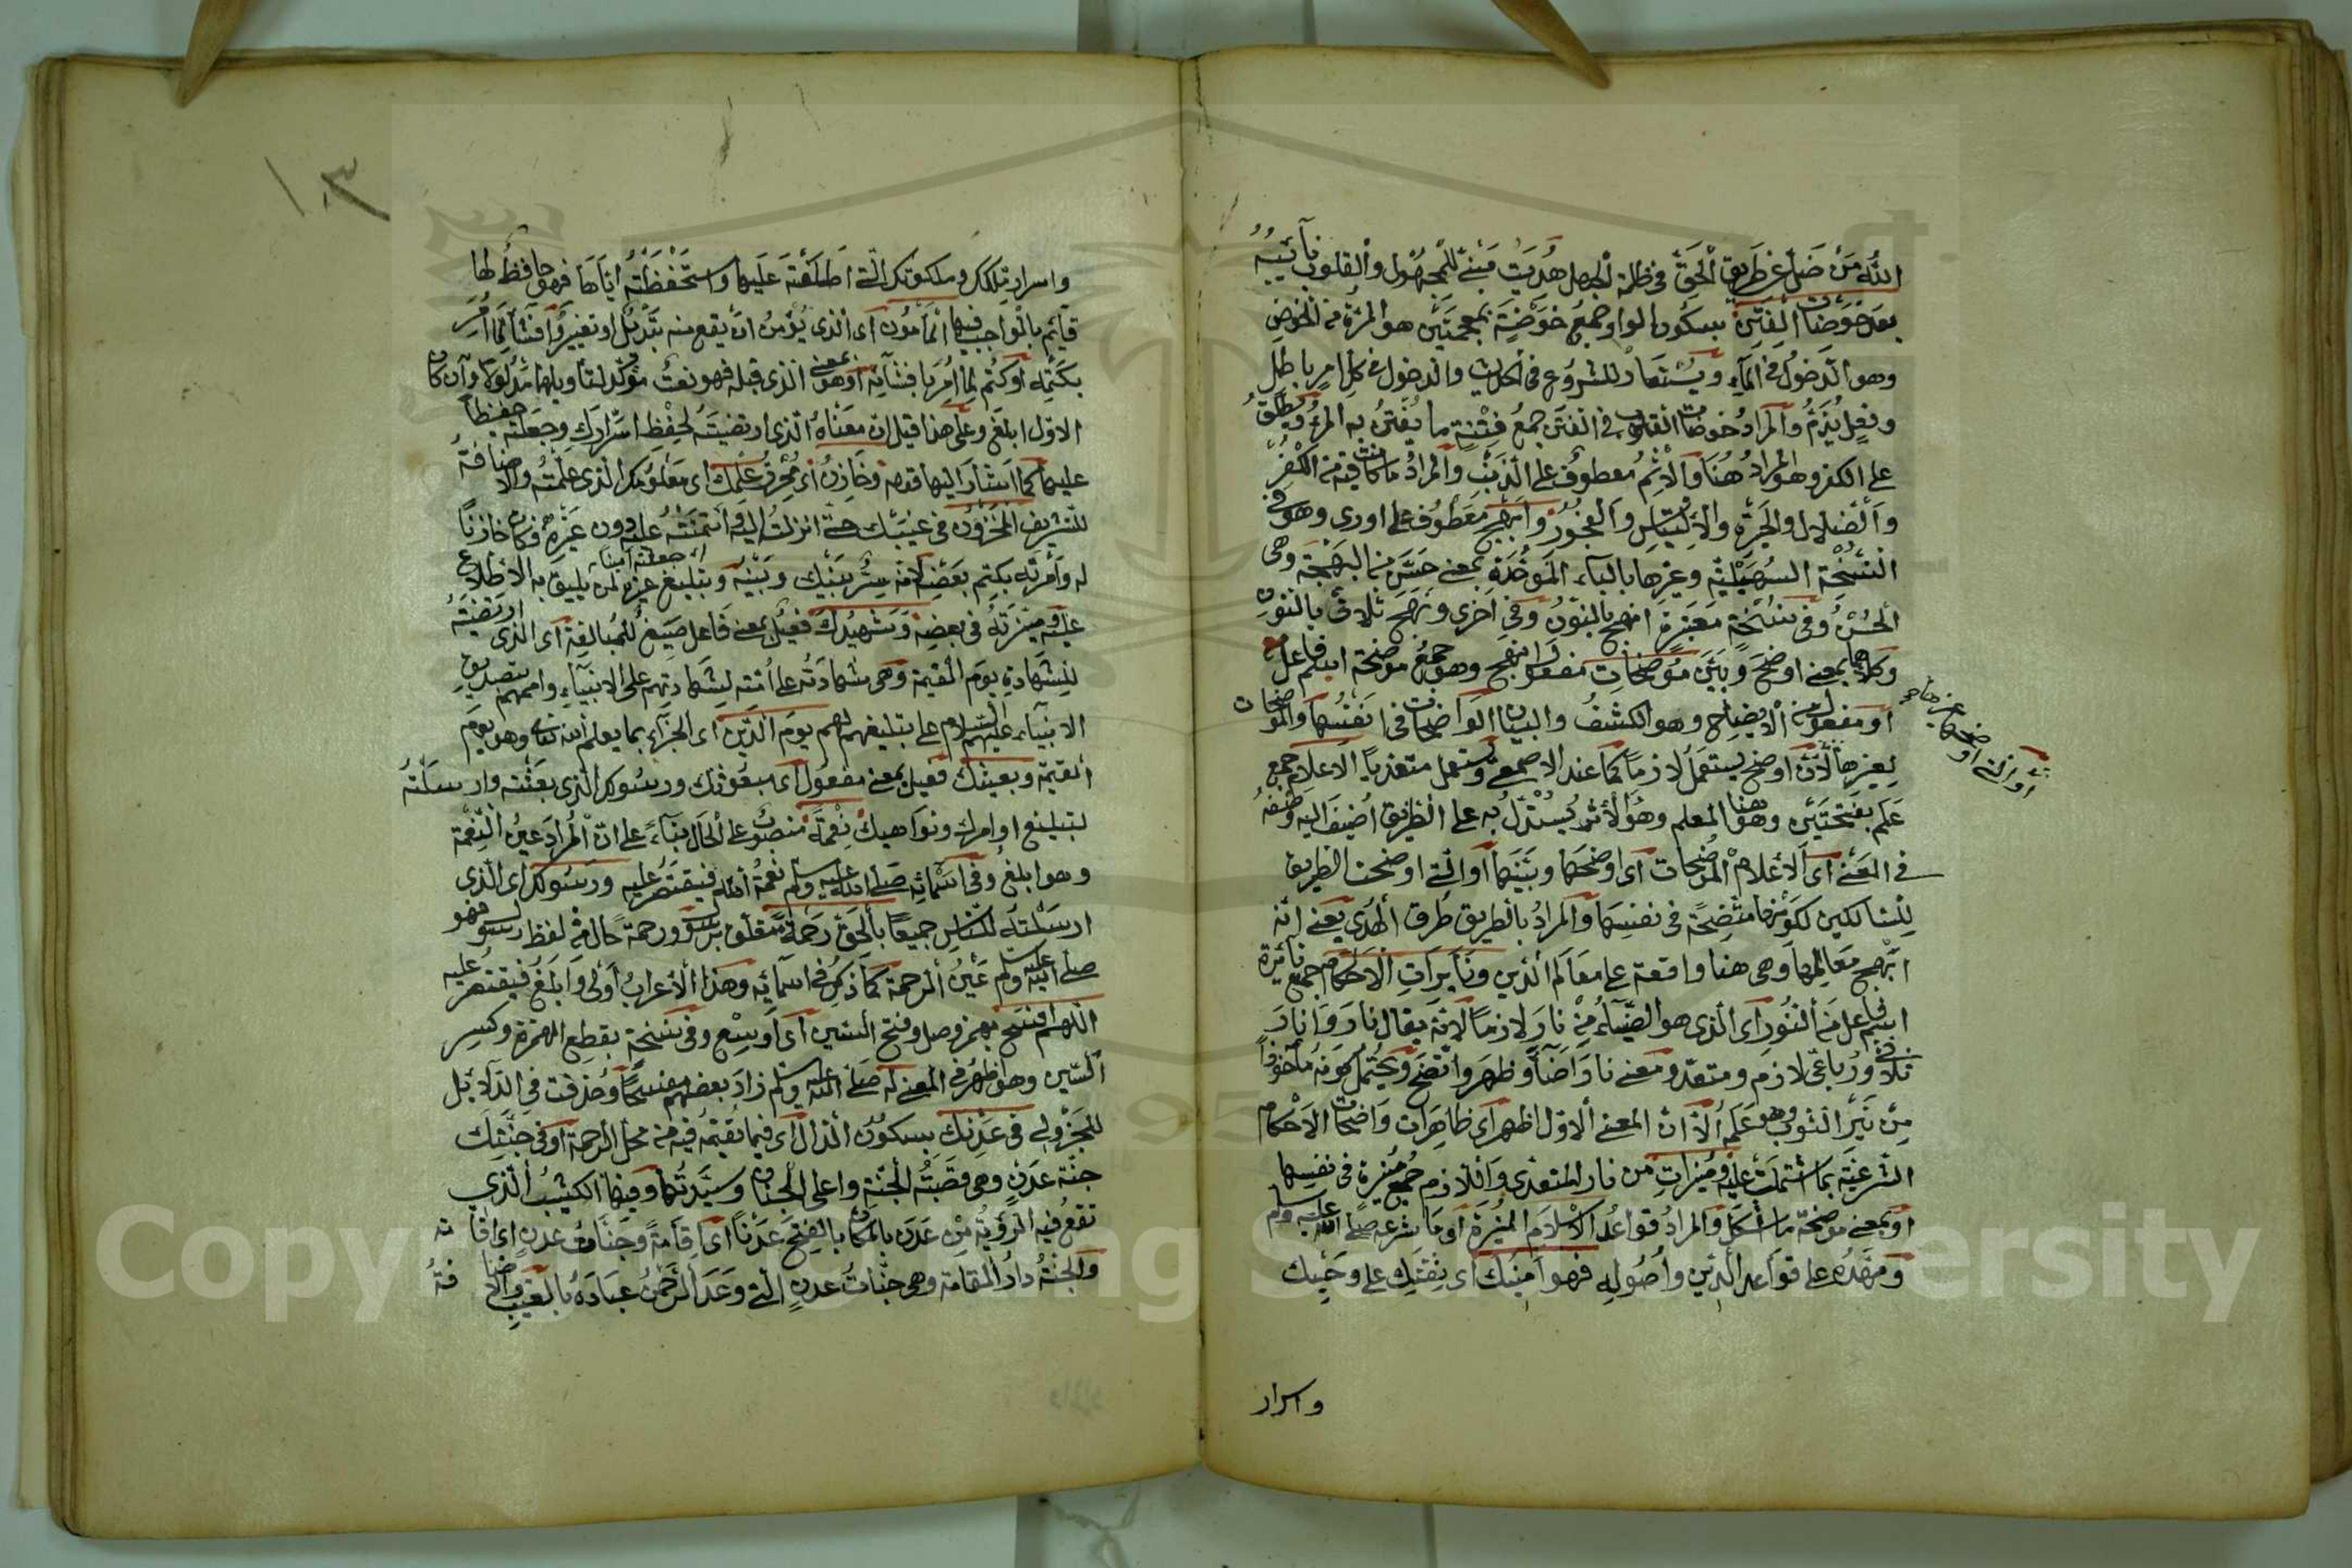 الله من ضل عن طريق الحق في ظلمة الجهل هديت مبني للمجهول والقلوب نائبه
بعد خوضات الفتن بسكون الواو جمع خوضة بمعجمتين هو المرة من الخوض
وهو الدخول في الماء ويستعار للشروع في الحديث والدخول في كل امر باطل
وفعل يذم والمراد خوضات القلوب في الفتن جمع فتنة ما يفتن به المرء ويطلق
على الكفر وهو المراد هنا والاثم معطوف على الذنب والمراد ما كانت فيه من الكفر
والضلال والحيرة والالتباس والفجور وابهج معطوف على اورى وهو في
النسخة السهيلية وغيرها بالباء الموحدة بمعنى حسن من البهجة وهي
الحسن وفي نسخة معتبرة انهج بالنون وفي اخرى ونهج ثلاثي بالنون
وكلاهما بمعنى اوضح وبين موضحات مفعول انهج وهو جمع موضحة اسم فاعل
او مفعول من الايضاح وهو الكشف والبيان الواضحات في انفسها والموضحات
لغيرها لان اوضح يستعمل لازما كما عند الاصمعي ويستعمل متعديا الاعلام جمع
علم بفتحتين وهو هنا المعلم وهو الاثر يستدل به على الطريق اضيف اليه وصفه
في المعنى اي الاعلام الموضحات اي اوضحها وبينها او التي اوضحت الطريق
للسالكين لكونها متضحة في نفسها والمراد بالطريق طرق الهدى يعني انه
ابهج معالمها وهي هنا واقعة على معالم الدين ونايرات الاحكام جمع نائرة
اسم فاعل من النور اي الذي هو الضياء من نار لازما لانه يقال نار وانار
ثلاثي ورباعي لازم ومتعد ومعنى نار اضاء وظهر واتضح ويحتمل كونه ماخوذا
من نير الثوب وهو علمه الا ان المعنى الاول اظهر اي ظاهرات واضحات الاحكام
الشرعية بما اشتملت عليه ومنيرات من نار المتعدي والازم جمع منيرة في نفسها
او بمعنى موضحة ما اشكل والمراد قواعد الاسلام المنيرة او ما شرعه صلى الله عليه وسلم
ومهده على قواعد الدين واصوله فهو امينك اي ثقتك على وحيك
واسرار
او التي اوضحها غيرها
١٠٣
واسرار ملكك وملكوتك التي اطلعته عليها واستحفظته اياها فهو حافظ لها
قائم بالواجب فيها المأمون اي الذي يؤمن ان يقع منه تبديل او تغيير او افشاء لما امر
بكتمه او كتم لما امر بافشائه او هو بمعنى الذي قبله فهو نعت مؤكد لتأويلهما مدلولا وان كان
الاول ابلغ وعلى هذا قيل ان معناه الذي ارتضيته لحفظ اسرارك وجعلته حفيظا
عليها كما اشار اليها قوله وخازن اي محرز علمك اي معلومك الذي علمته والاضافة
للتشريف المخزون في غيبك حتى انزلته اليه وائتمنته عليه دون غيره فكان خازنا
له وامرته بكتم بعضه لانه سر بينك وبينه وبتبليغ غيره لمن يليق به الاطلاع
عليه وخيرته في بعضه وشهيدك فعيل بمعنى فاعل صيغ للمبالغة اي الذي ارتضيته
للشهادة يوم القيمة وهي شهادته على امته لشهادتهم على الانبياء واممهم بتصديق
الانبياء عليهم السلام على تبليغهم لهم يوم الدين اي الجزاء بما يعلم الله تعالى وهو يوم
القيمة وبعيثك فعيل بمعنى مفعول اي مبعوثك ورسولك الذي بعثته وارسلته
لتبليغ اوامرك ونواهيك نعمة منصوب على الحال بناء على ان المراد عين النعمة
وهو ابلغ وفي اسمائه صلى الله عليه وسلم نعمة الله فيقتصر عليه ورسولك اي الذي
ارسلته للناس جميعا بالحق رحمة متعلق برسول ورحمة حال من لفظ رسول فهو
صلى الله عليه وسلم عين الرحمة كما ذكر في اسمائه وهذا الاعراب اولى وابلغ فيقتصر عليه
اللهم افسح بهمز وصل وفتح السين اي اوسع وفي نسخة بقطع الهمزة وكسر
السين وهو اظهر في المعنى له صلى الله عليه وسلم زاد بعضهم مفسحا وحذفت في الدلائل
للجزولي في عدنك بسكون الدال اي فيما تقيمه فيه من محل الرحمة او في جنتك
جنة عدن وهي قصبة الجنة واعلى الجنان وسيدتها وفيها الكثيب الذي
تقع فيه الرؤية من عدن بالمكان بالفتح عدنا اي اقامة وجنات عدن اي اقامة
والجنة دار المقامة وهي جنات عدن التي وعد الرحمن عباده بالغيب والاضافة
Copyright © King Saud University